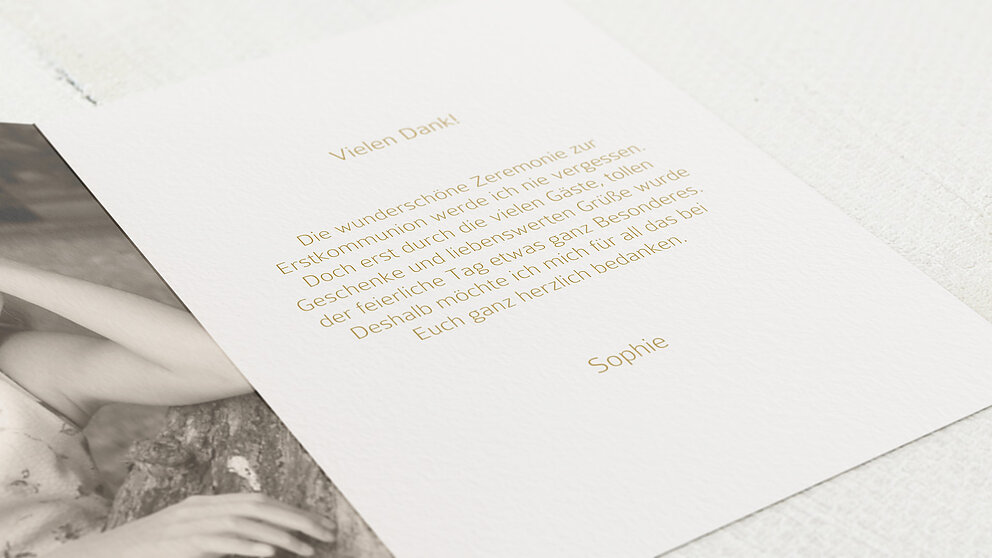 Vielen Dank!
Die wunderschöne Zeremonie zur
Erstkommunion werde ich nie vergessen.
Doch erst durch die vielen Gäste, tollen
Geschenke und liebenswerten Grüße wurde
der feierliche Tag etwas ganz Besonderes.
Deshalb möchte ich mich für all das bei
Euch ganz herzlich bedanken.
Sophie